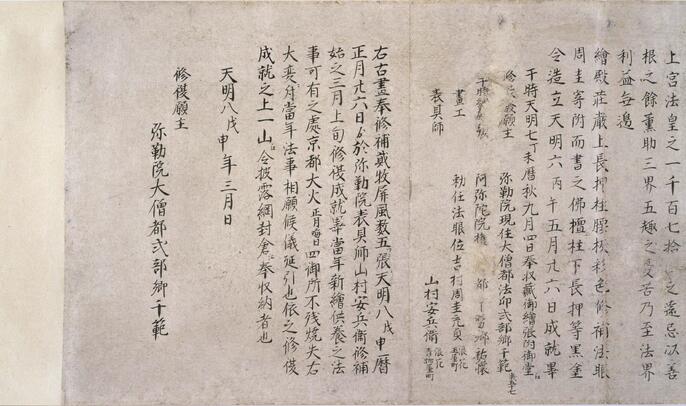 上宮法皇之一千百七拾 之遠忌以善
根之餘薫助三界五趣之 苦乃至法界
利益無邊
繪殿荘厳上長押柱腰板彩色修補法眼
周圭寄附而書之佛檀柱下長押等黒塗
令造立天明六丙午五月廿六日成就畢
干時天明七丁未暦秋九月四日奉収蔵御繪張附御堂
修 願主 弥勒院現住大僧都法印弐部卿千範
干時 阿弥陀院 祐懐
畫工 勅任法眼位吉村周圭充貞 浪花
表具師 山村安兵衛 浪花
右古畫奉修補蔵牧屏風数五張天明八戊申暦
正月廿六日ゟ於弥勒院表具師山村安兵衛修補
始之三月上旬修復成就畢當年新繪供養之法
事可有之處京都大火 四御所不残焼失右
大変付當年法事相願候儀延引也依之修復
成就之上一山 令披露綱封倉 奉収納者也
天明八戊申年三月日
修復願主
弥勒院大僧都弐部卿千範